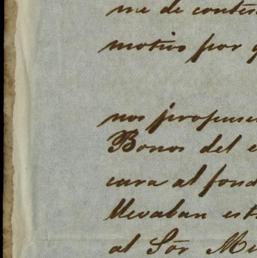 me de contes
motivo por q
nos propusi
Bonos del e
cara al fond
llevaban est
al Sör Mi